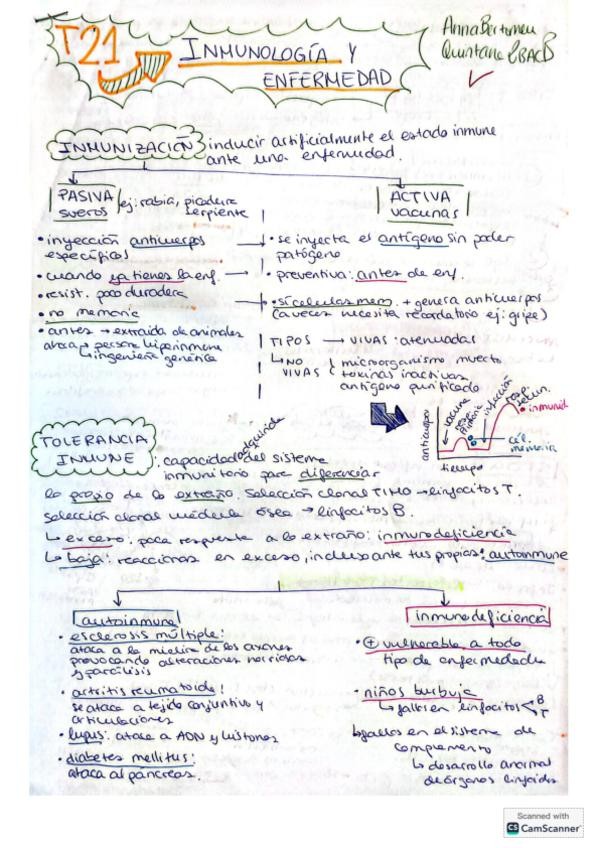 T21 INMUNOLOGÍA Y
ENFERMEDAD
Anna Bertomeu
Quintana 2BACB
INMUNIZACIÓN: inducir artificialmente el estado inmune
ante una enfermedad.
PASIVA
sueros
ej: rabia, picadura
serpiente
• inyección anticuerpos
específicos
• cuando ya tienes la enf.
• resist. poco duradera
• no memoria
• antes → extraida de animales
ahora → persona hiperinmune
↳ ingeniería genética
ACTIVA
vacunas
• se inyecta el antígeno sin poder
patógeno
• preventiva: antes de enf.
• sí células mem. + genera anticuerpos
(a veces necesita recordatorio ej: gripe)
TIPOS → VIVAS: atenuadas
↳ NO VIVAS
microorganismo muerto
toxinas inactivas
antígeno purificado
anticuerpos
vacuna
resp. primaria
infección
resp. secun.
inmunid.
cél. memoria
tiempo
TOLERANCIA
INMUNE
: capacidad adquirida del sistema
inmunitario para diferenciar
lo propio de lo extraño. Selección clonal TIMO → linfocitos T.
Selección clonal médula ósea → linfocitos B.
↳ exceso: poca respuesta a lo extraño: inmunodeficiencia
↳ baja: reaccionas en exceso, incluso ante tus propias: autoinmune
autoinmune
• esclerosis múltiple:
ataca a la mielina de los axones
provocando alteraciones nerviosas
y parálisis
• artritis reumatoide:
se ataca a tejido conjuntivo y
articulaciones
• lupus: ataca a ADN y histonas
• diabetes mellitus:
ataca al páncreas.
inmunodeficiencia
• + vulnerable a todo
tipo de enfermedades
• niños burbuja
↳ fallos en linfocitos B T
↳ fallos en el sistema de
complemento
↳ desarrollo anormal
de órganos linfoides
Scanned with
CS CamScanner